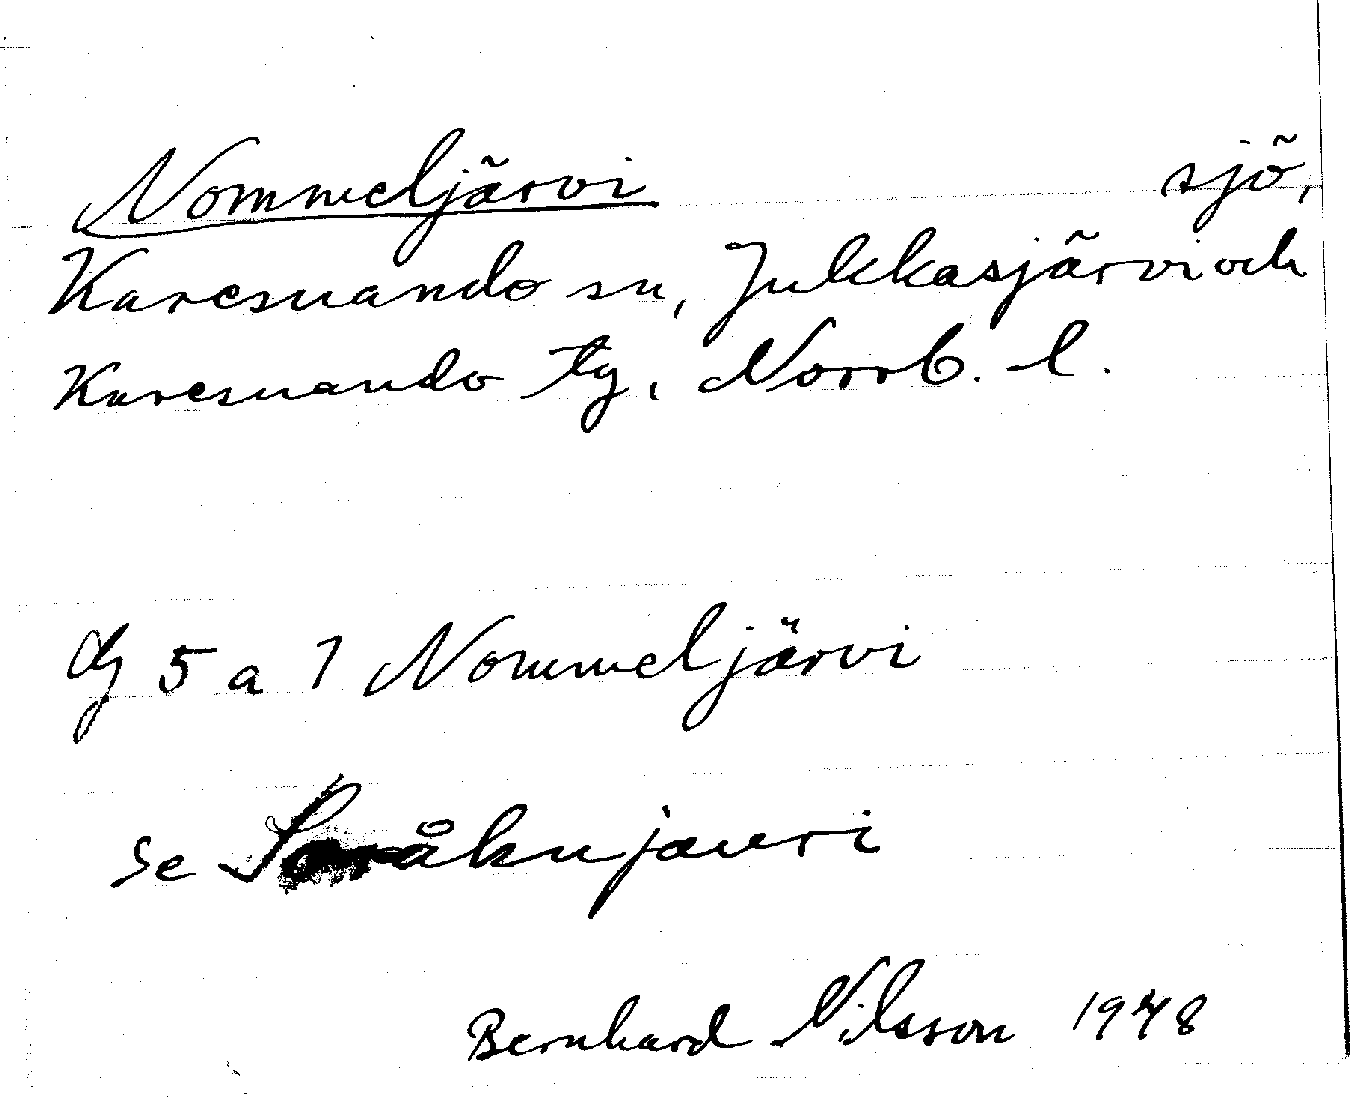 Nommeljärvi sjö,
Karesuando sn, Jukkasjärvi och
Karesuando tg, Norrb. l.
dg 5 a 7 Nommeljärvi
se Soråkujauri
Bernhard Nilsson 1948